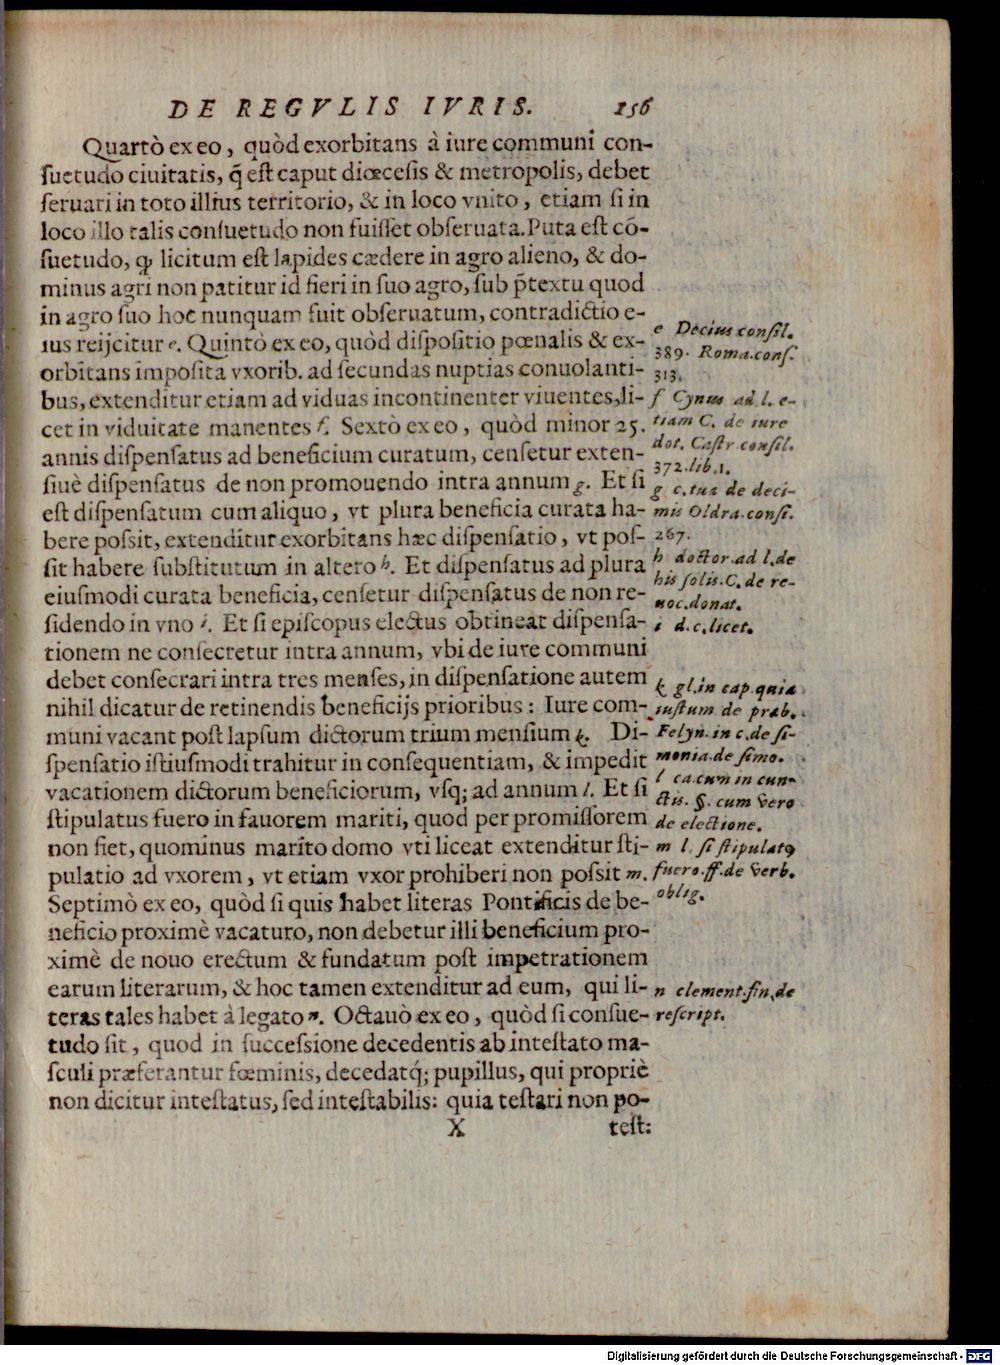 DE REGVLIS IVRIS. 156
Quartò ex eo, quòd exorbitans à iure communi con-
ſuetudo ciuitatis, q̃ eſt caput diœceſis & metropolis, debet
ſeruari in toto illius territorio, & in loco vnito, etiam ſi in
loco illo talis conſuetudo non fuiſſet obſeruata. Puta eſt cõ-
ſuetudo, ꝙ licitum eſt lapides cædere in agro alieno, & do-
minus agri non patitur id fieri in ſuo agro, ſub p̃textu quod
in agro ſuo hoc nunquam fuit obſeruatum, contradictio e-
ius reijcitur e. Quintò ex eo, quòd diſpoſitio pœnalis & ex-
orbitans impoſita vxorib. ad ſecundas nuptias conuolanti-
bus, extenditur etiam ad viduas incontinenter viuentes, li-
cet in viduitate manentes f. Sextò ex eo, quòd minor 25.
annis diſpenſatus ad beneficium curatum, cenſetur exten-
ſiuè diſpenſatus de non promouendo intra annum g. Et ſi
eſt diſpenſatum cum aliquo, vt plura beneficia curata ha-
bere poſsit, extenditur exorbitans hæc diſpenſatio, vt poſ-
ſit habere ſubſtitutum in altero h. Et diſpenſatus ad plura
eiuſmodi curata beneficia, cenſetur diſpenſatus de non re-
ſidendo in vno i. Et ſi epiſcopus electus obtineat diſpenſa-
tionem ne conſecretur intra annum, vbi de iure communi
debet conſecrari intra tres menſes, in diſpenſatione autem
nihil dicatur de retinendis beneficijs prioribus: Iure com-
muni vacant poſt lapſum dictorum trium menſium k. Di-
ſpenſatio iſtiuſmodi trahitur in conſequentiam, & impedit
vacationem dictorum beneficiorum, vſq; ad annum l. Et ſi
ſtipulatus fuero in fauorem mariti, quod per promiſſorem
non fiet, quominus marito domo vti liceat extenditur ſti-
pulatio ad vxorem, vt etiam vxor prohiberi non poſsit m.
Septimò ex eo, quòd ſi quis habet literas Pontificis de be-
neficio proximè vacaturo, non debetur illi beneficium pro-
ximè de nouo erectum & fundatum poſt impetrationem
earum literarum, & hoc tamen extenditur ad eum, qui li-
teras tales habet à legato n. Octauò ex eo, quòd ſi conſue-
tudo ſit, quod in ſucceſsione decedentis ab inteſtato ma-
ſculi præferantur fœminis, decedatq́; pupillus, qui propriè
non dicitur inteſtatus, ſed inteſtabilis: quia teſtari non po-
X teſt:
e Decius conſil.
389. Roma. conſ.
313.
f Cynus ad l. e-
tiam C. de iure
dot. Caſtr. conſil.
372. lib. 1.
g c. tua de deci-
mis Oldra. conſi.
267.
h doctor. ad l. de
his ſolis. C. de re-
uoc. donat.
i d. c. licet.
k gl. in cap. quia
iuſtum de præb.
Felyn. in c. de ſi-
monia. de ſimo.
l ca. cum in cun-
ctis. §. cum vero
de electione.
m l. ſi ſtipulatꝰ
fuero. ff. de verb.
oblig.
n clement. fin. de
reſcript.
Digitalisierung gefördert durch die Deutsche Forschungsgemeinschaft - DFG